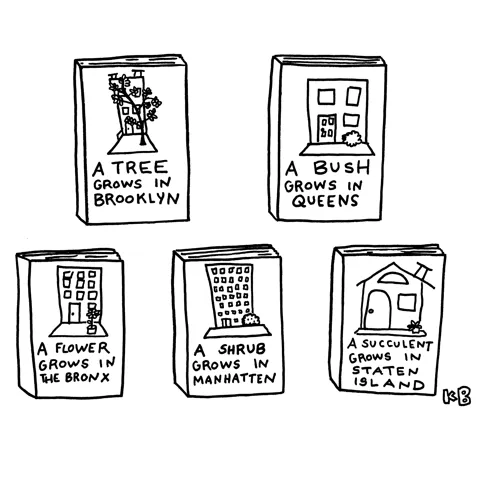 A TREE
GROWS IN
BROOKLYN
A BUSH
GROWS IN
QUEENS
A FLOWER
GROWS IN
THE BRONX
A SHRUB
GROWS IN
MANHATTEN
A SUCCULENT
GROWS IN
STATEN
ISLAND
KB